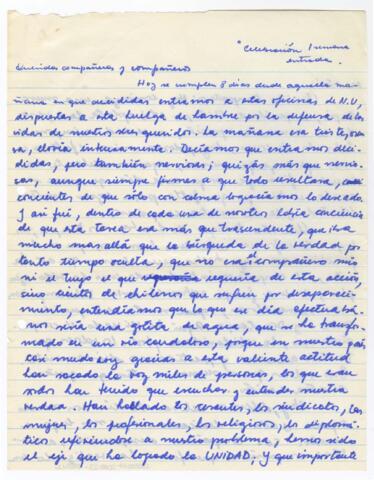 "Celebración 1 semana
entrada.
Queridas compañeras y compañeros
Hoy se cumplen 8 días desde aquella ma-
ñana en que decididas entramos a estas oficinas de N.U,
dispuestas a esta huelga de hambre por la defensa de las
vidas de nuestros seres queridos. La mañana era triste,
llovía intensamente. Decíamos que entramos deci-
didas, pero también nerviosas; quizás más que nervio-
sas, aunque siempre firmes a que todo resultara,
concientes de que sólo con calma lograríamos lo deseado.
Y así fué, dentro de cada una de nosotras había conciencia
de que esta tarea era más que trascendente, que iba
mucho más allá que la búsqueda de la verdad por
tanto tiempo oculta, que no era el compañero mío
ni el tuyo el que requería de esta acción,
sino cientos de chilenos que sufren por desapareci-
miento, entendíamos que lo que ese día efectuába-
mos sería una gotita de agua, que se ha transfor-
mado en un río caudaloso, porque en nuestro país
casi mudo hoy gracias a esta valiente actitud
han sacado la voz miles de personas, los que eran
sordos han tenido que escuchar y entender nuestra
verdad. Han hablado los cesantes, los sindicatos, las
mujeres, los profesionales, los religiosos, los diplomá-
ticos refiriéndose a nuestro problema, hemos sido
el eje que ha logrado la UNIDAD; y que importante